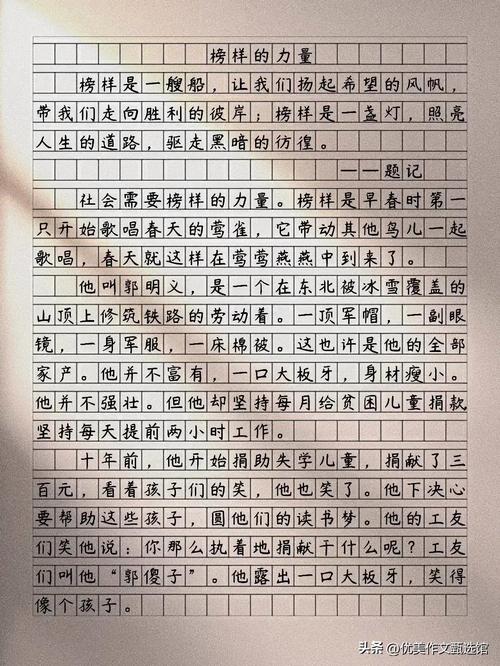 榜样的力量
榜样是一艘船，让我们扬起希望的风帆，
带我们走向胜利的彼岸；榜样是一盏灯，照亮
人生的道路，驱走黑暗的彷徨。
——题记
社会需要榜样的力量。榜样是早春时第一
只开始歌唱春天的莺雀，它带动其他鸟儿一起
歌唱，春天就这样在莺莺燕燕中到来了。
他叫郭明义，是一个在东北被冰雪覆盖的
山顶上修筑铁路的劳动着。一顶军帽，一副眼
镜，一身军服，一床棉被。这也许是他的全部
家产。他并不富有，一口大板牙，身材瘦小。
他并不强壮。但他却坚持每月给贫困儿童捐款
坚持每天提前两小时工作。
十年前，他开始捐助失学儿童，捐献了三
百元，看着孩子们的笑，他也笑了。他下决心
要帮助这些孩子，圆他们的读书梦。他的工友
们笑他说：你那么执着地捐献干什么呢？工友
们叫他“郭傻子”。他露出一口大板牙，笑得
像个孩子。
头条 @优美作文甄选馆